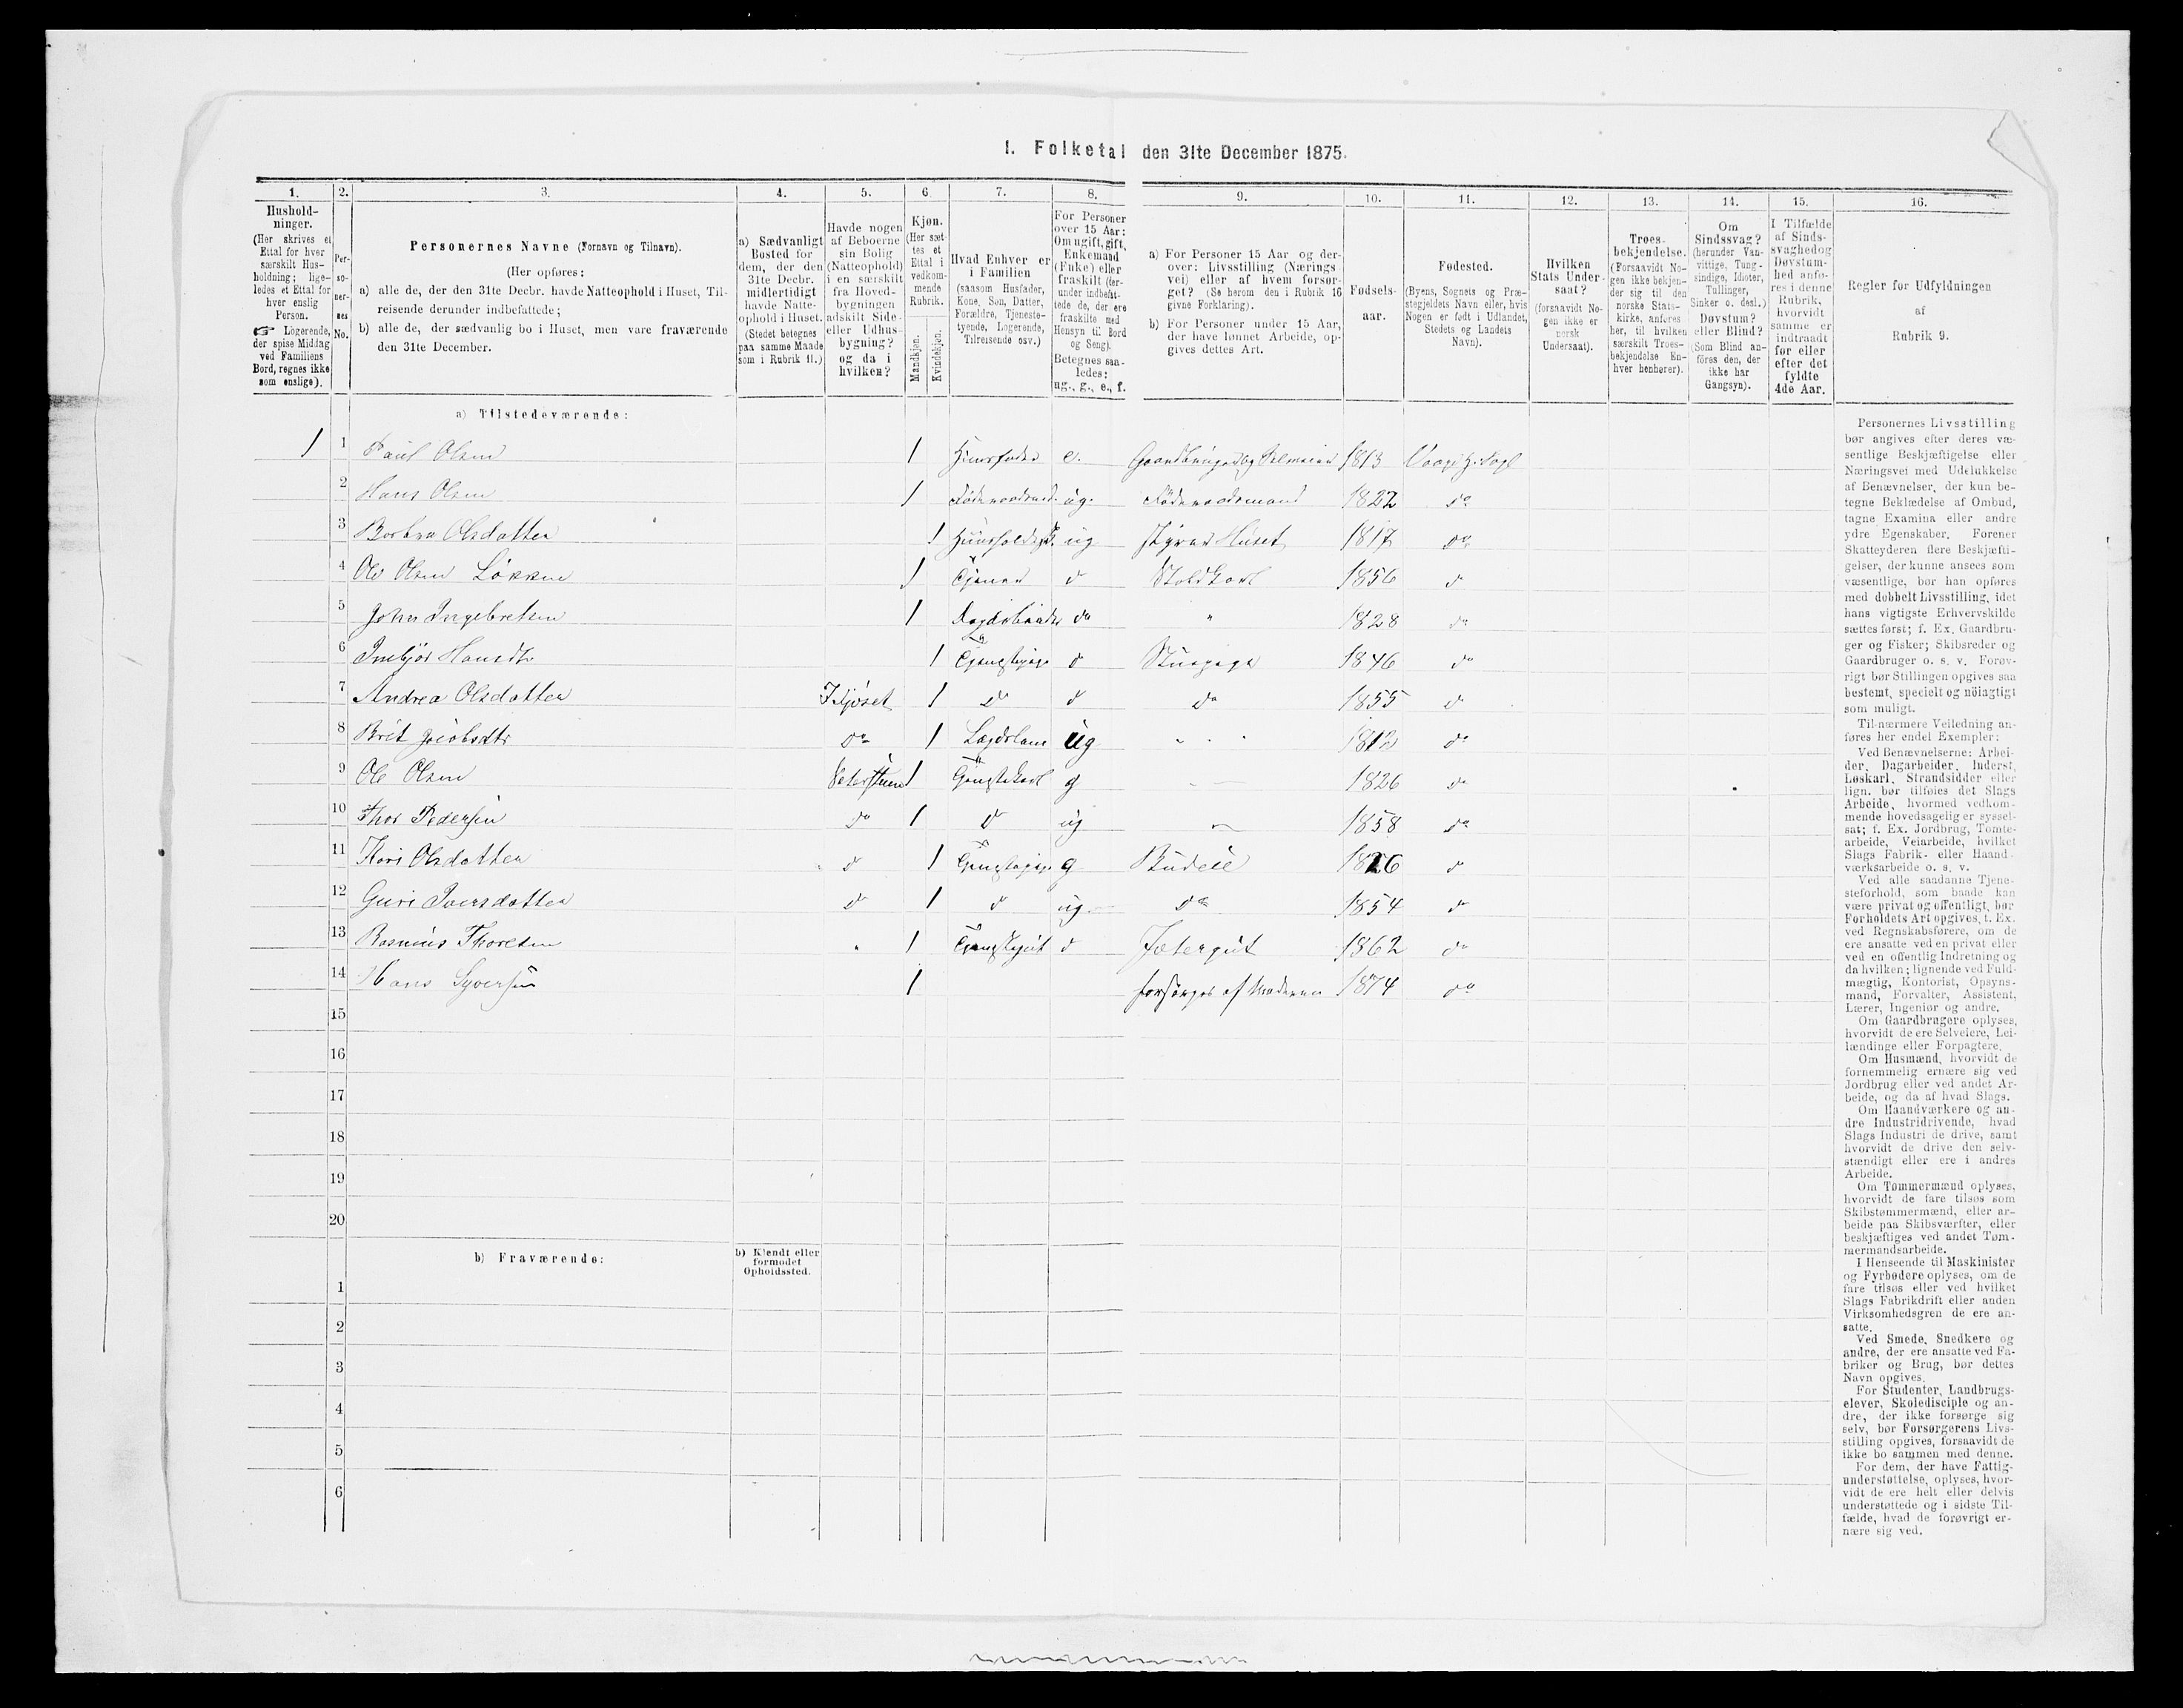 1. Folketal den 31te December 1875.
1.
2.
3.
4.
5.
6.
7.
8.
9.
10.
11.
12.
13.
14.
15.
16.
Hushold-
ninger.
(Her skrives et
Ettal for hver
særskilt Hus-
holdning; lige-
ledes et Ettal for
hver enslig
Person.
☞ Logerende,
der spise Middag
ved Familiens
Bord, regnes ikke
som enslige).
Per-
so-
ner-
nes
No.
Personernes Navne (Fornavn og Tilnavn).
(Her opføres:
a) alle de, der den 31te Decbr. havde Natteophold i Huset, Til-
reisende derunder indbefattede;
b) alle de, der sædvanlig bo i Huset, men vare fraværende
den 31te December.
a) Sædvanligt
Bosted for
dem, der den
31te Decbr.
midlertidigt
havde Natte-
ophold i Huset.
(Stedet betegnes
paa samme Maade
som i Rubrik 11.)
Havde nogen
af Beboerne
sin Bolig
(Natteophold)
i en særskilt
fra Hoved-
bygningen
adskilt Side-
eller Udhus-
bygning?
og da i
hvilken?
Kjøn.
(Her sæt-
tes et
Ettal i
vedkom-
mende
Rubrik.
Mandkjøn.
Kvindekjøn.
Hvad Enhver er
i Familien
(saasom Husfader,
Kone, Søn, Datter,
Forældre, Tjeneste-
tyende, Logerende,
Tilreisende osv.)
For Personer
over 15 Aar:
Om ugift, gift,
Enkemand
(Enke) eller
fraskilt (der-
under indbefat-
tede de, der ere
fraskilte med
Hensyn til Bord
og Seng).
Betegnes saa-
ledes:
ug., g., e., f.
a) For Personer 15 Aar og der-
over: Livsstilling (Nærings-
vei) eller af hvem forsør-
get? (Se herom den i Rubrik 16
givne Forklaring).
b) For Personer under 15 Aar,
der have lønnet Arbeide, op-
gives dettes Art.
Fødsels-
aar.
Fødested.
(Byens, Sognets og Præ-
stegjeldets Navn eller, hvis
Nogen er født i Udlandet,
Stedets og Landets
Navn).
Hvilken
Stats Under-
saat?
(forsaavidt No-
gen ikke er
norsk
Undersaat).
Troes-
bekjendelse.
(Forsaavidt No-
gen ikke bekjen-
der sig til den
norske Stats-
kirke, anføres
her, til hvilken
særskilt Troes-
bekjendelse En-
hver henhører).
Om
Sindssvag?
(herunder Van-
vittige, Tung-
sindige, Idioter,
Tullinger,
Sinker o. desl.)
Døvstum?
eller Blind?
(Som Blind an-
føres den, der
ikke har
Gangsyn).
I Tilfælde
af Sinds-
svaghed og
Døvstum-
hed anfø-
res i denne
Rubrik,
hvorvidt
samme er
indtraadt
før eller
efter det
fyldte
4de Aar.
Regler for Udfyldningen
af
Rubrik 9.
a) Tilstedeværende:
1 1 Paul Olsen 1 Huusfader e. Gaardbruger og Selveier 1813
2 Hans Olsen 1 ug. Föderaadsmand 1822 do
3 Olsdatter 1 ug Styrer Huset 1817 do
4 Ole Olsen Løkken 1 Tjener d Staldkarl 1856 d
5 John Ingebretsen 1 do " 1828 do
6 Imbjør Hansdtr 1 d Stuepige 1846 do
7 Andrea Olsdatter Fjøset 1 d d do 1855 d
8 Brit Jacobsdtr do 1 Lægdslem ug " 1812 do
9 Ole Olsen 1 Tjenstekarl g " 1826 d
10 Thor Pedersen do 1 d ug 1858 do
11 Kari Olsdatter d 1 Tjenstepige g Budeie 1826 d
12 Guri Iversdatter d 1 d ug do 1854 d
13 Rasmus Thoresen " 1 Tjenstegut d Jetergut 1862 do
14 Hans Syversen 1 forsørges af Moderen 1874 do
15
16
17
18
19
20
b) Fraværende:
b) Kjendt eller
formodet
Opholdssted.
1
2
3
4
5
6
Personernes Livsstilling
bør angives efter deres væ-
sentlige Beskjæftigelse eller
Næringsvei med Udelukkelse
af Benævnelser, der kun be-
tegne Beklædelse af Ombud,
tagne Examina eller andre
ydre Egenskaber. Forener
Skatteyderen flere Beskjæfti-
gelser, der kunne ansees som
væsentlige, bør han opføres
med dobbelt Livsstilling, idet
hans vigtigste Erhvervskilde
sættes først; f. Ex. Gaardbru-
ger og Fisker; Skibsreder og
Gaardbruger o. s. v. Forøv-
rigt bør Stillingen opgives saa
bestemt, specielt og nöiagtigt
som muligt.
Til nærmere Veiledning an-
føres her endel Exempler:
Ved Benævnelserne: Arbei-
der, Dagarbeider, Inderst,
Løskarl, Strandsidder eller
lign. bør tilføies det Slags
Arbeide, hvormed vedkom-
mende hovedsagelig er syssel-
sat; f. Ex. Jordbrug, Tomte-
arbeide, Veiarbeide, hvilket
Slags Fabrik- eller Haand-
værksarbeide o. s. v.
Ved alle saadanne Tjene-
steforhold, som baade kan
være privat og offentligt, bør
Forholdets Art opgives, t. Ex.
ved Regnskabsførere, om de
ere ansatte ved en privat eller
ved en offentlig Indretning og
da hvilken; lignende ved Fuld-
mægtig, Kontorist, Opsyns-
mand, Forvalter, Assistent,
Lærer, Ingeniør og andre.
Om Gaardbrugere oplyses,
hvorvidt de ere Selveiere, Lei-
lændinge eller Forpagtere.
Om Husmænd, hvorvidt de
fornemmelig ernære sig ved
Jordbrug eller ved andet Ar-
beide, og da af hvad Slags.
Om Haandværkere og an-
dre Industridrivende, hvad
Slags Industri de drive, samt
hvorvidt de drive den selv-
stændigt eller ere i andres
Arbeide.
Om Tømmermænd oplyses,
hvorvidt de fare tilsøs som
Skibstømmermænd, eller ar-
beide paa Skibsværfter, eller
beskjæftiges ved andet Tøm-
mermandsarbeide.
I Henseende til Maskinister
og Fyrbødere oplyses, om de
fare tilsøs eller ved hvilket
Slags Fabrikdrift eller anden
Virksomhedsgren de ere an-
satte.
Ved Smede, Snedkere og
andre, der ere ansatte ved Fa-
briker og Brug, bør dettes
Navn opgives.
For Studenter, Landbrugs-
elever, Skoledisciple og an-
dre, der ikke forsørge sig
selv, bør Forsørgerens Livs-
stilling opgives, forsaavidt de
ikke bo sammen med denne.
For dem, der have Fattig-
understøttelse, oplyses, hvor-
vidt de ere helt eller delvis
understøttede og i sidste Til-
fælde, hvad de forøvrigt er-
nære sig ved.